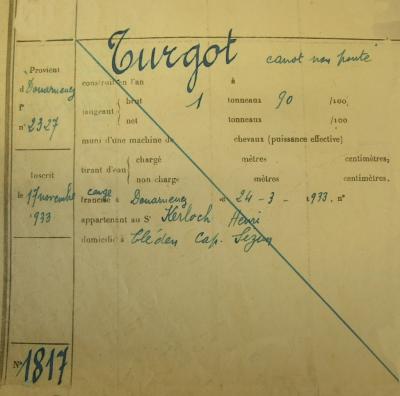 Turgot canot non ponté
Provient
d Douarnenez
f°
n° 2327
construit en l'an à
jaugeant brut 1 tonneaux 90 /100,
net tonneaux /100
muni d'une machine de chevaux (puissance effective)
tirant d'eau chargé mètres, centimètres,
non chargé mètres centimètres.
Inscrit
le 17 novembre
1933
congé
francisé à Douarnenez le 24 - 3 - 1933. n°
appartenant au Sr Kerloch Henri
domicilié à Cléden Cap. Sizun
N° 1817